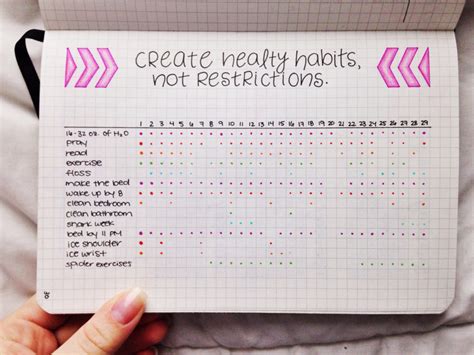 CREATE HEALTY HABITS,
NOT RESTRICTIONS.
1 2 3 4 5 6 7 8 9 10 11 12 13 14 15 16 17 18 19 20 21 22 23 24 25 26 27 28 29
16-32 OZ. OF H₂O
PRAY
READ
EXERCISE
FLOSS
MAKE THE BED
WAKE UP BY 8
CLEAN BEDROOM
CLEAN BATHROOM
SHARK WEEK
BED BY 11 PM
ICE SHOULDER
ICE WRIST
SPIDER EXERCISES